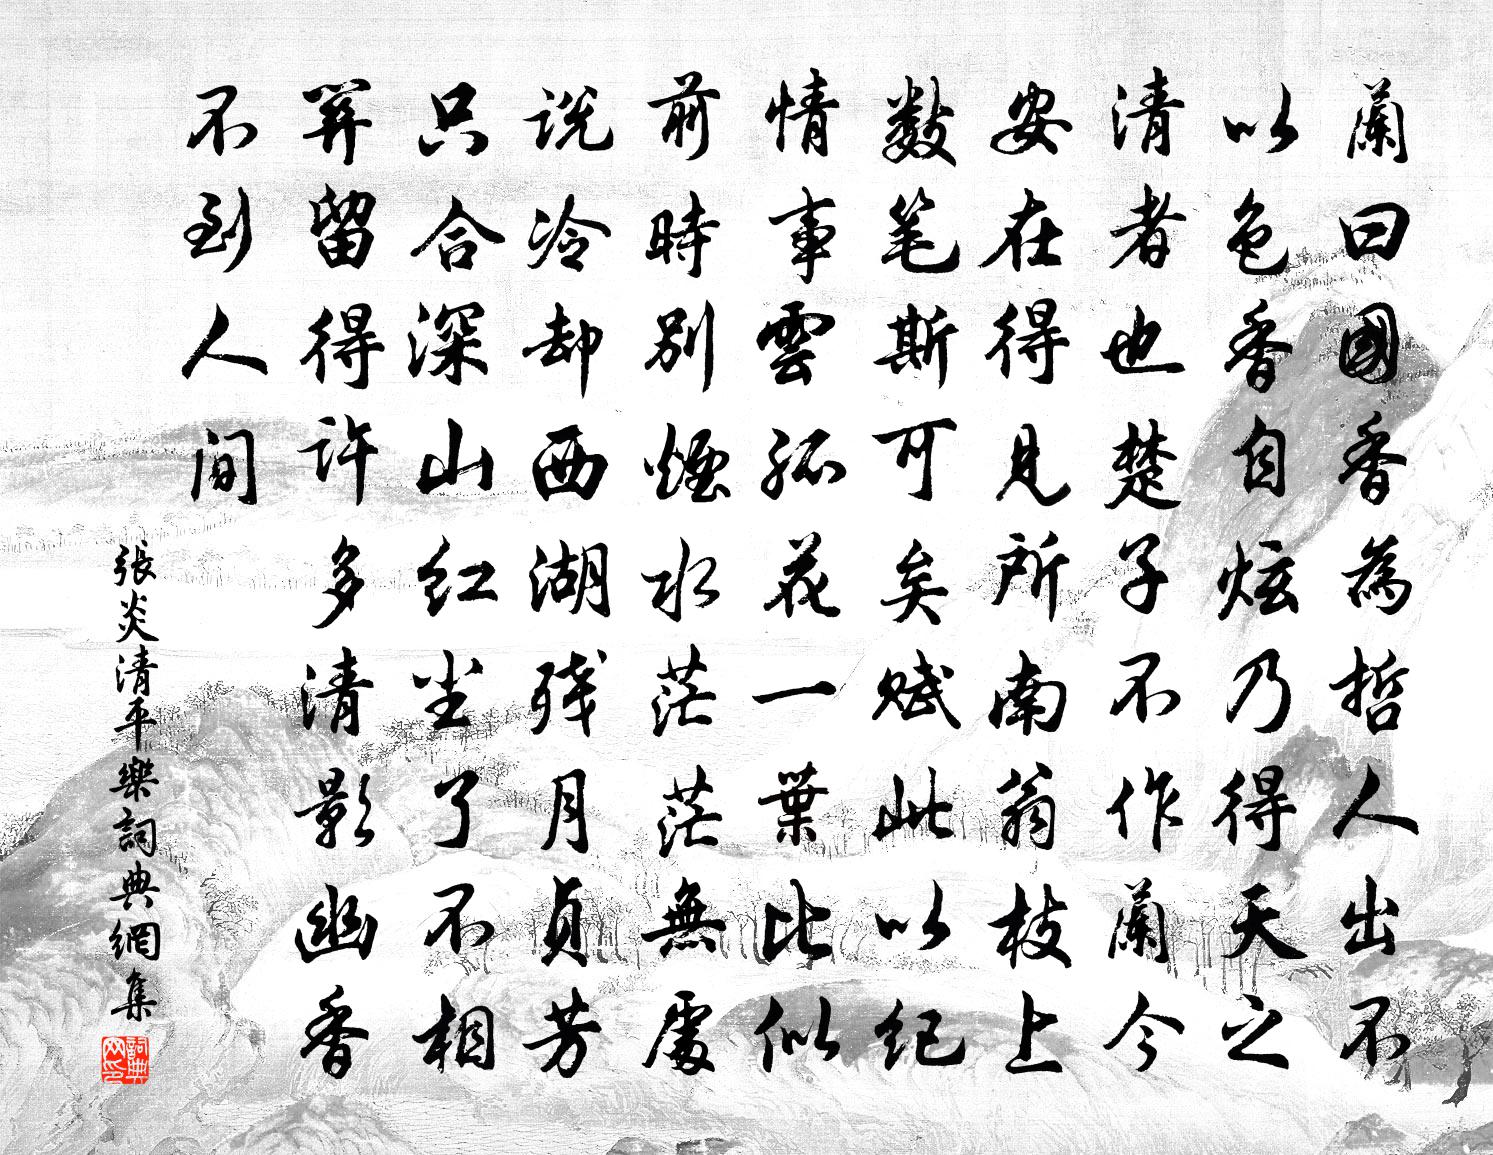 蘭曰國香為哲人出不
以色香自炫乃得天之
清者也楚子不作蘭今
安在得見所南翁枝上
數笔斯可矣賦此以紀
情事雲孤花一葉比似
前時別煙水茫茫無處
説冷却西湖残月貞芳
只合深山红尘了不相
關留得许多清影幽香
不到人間
張炎清平樂詞典網集
詞典网印